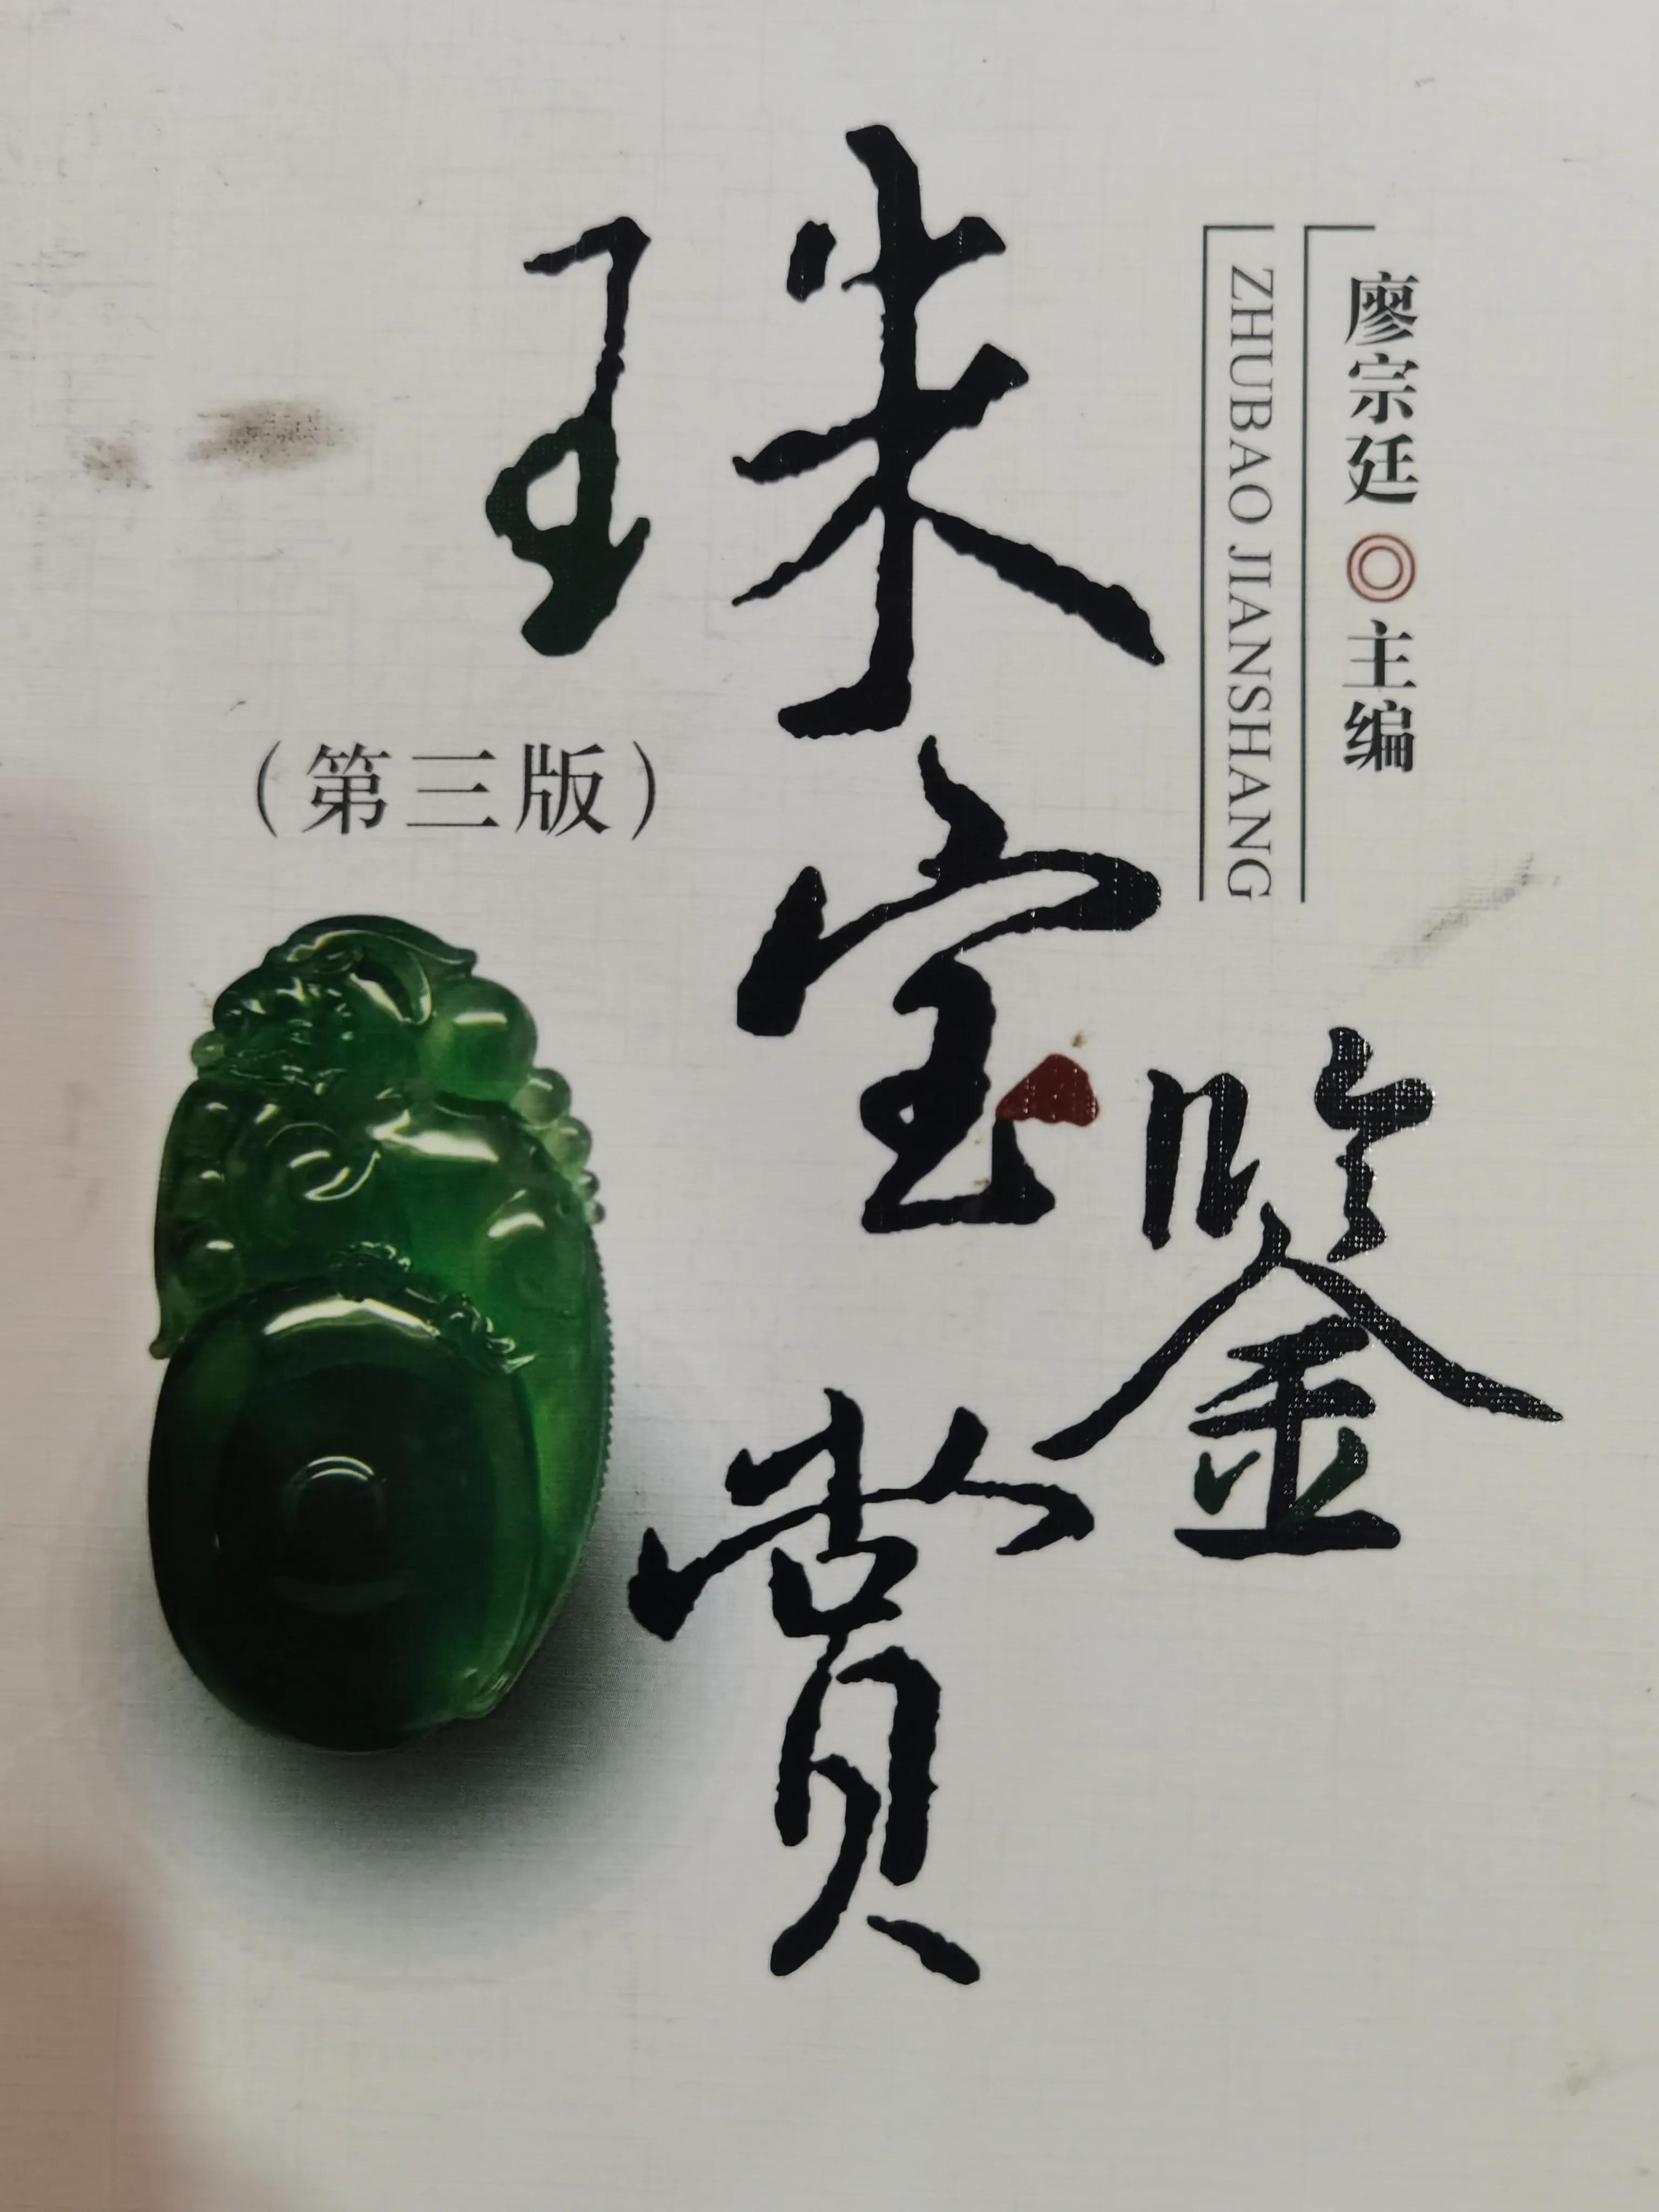 珠宝鉴赏
(第三版)
ZHUBAO JIANSHANG
廖宗廷◎主编